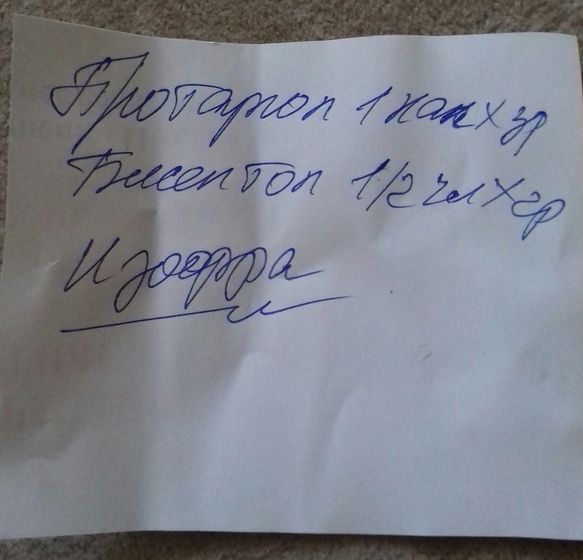 Протаргол 1 кап х 3р
Бисептол 1/2 чл х 2р
Изофра